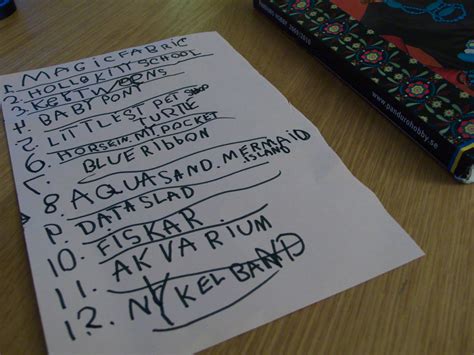 1. MAGIC FABRIC
2. HOLLO KITT SCHOOL
3. KETTWOONS
4. BABY PONY
5. LITTLEST PET SHOP
TURTLE
6. HORSE IN. MY. POCKET
7. BLUE RIBBON
8. AQUA SAND. MERMAID
ISLAND
9. DATASLAD
10. FISKAR
11. AKVARIUM
12. NYKELBAND
www.pandurohobby.se